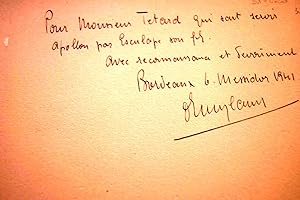 Pour Monsieur Tetard qui sait servir
Apollon par Esculape son fils.
Avec reconnaissance et
Bordeaux 6 Messidor 1941